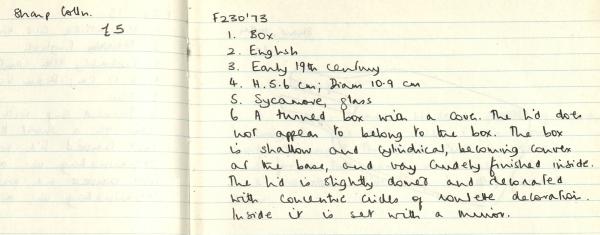 Sharp Colln.
£5
F230'73
1. Box
2. English
3. Early 19th century
4. H. 5.6 cm; Diam 10.9 cm
5. Sycamore, glass
6 A turned box with a cover. The lid does
not appear to belong to the box. The box
is shallow and cylindrical, becoming convex
at the base, and very crudely finished inside.
The lid is slightly domed and decorated
with concentric circles of roulette decoration.
Inside it is set with a mirror.